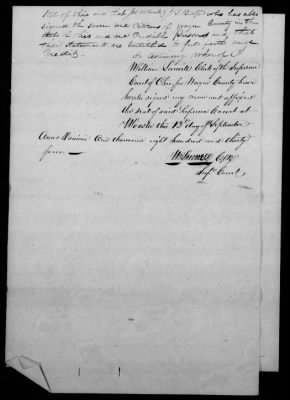 State of Ohio and
signed the same are Citizens of Wayne County in the
State of Ohio and are Credible persons and that
their Statements are entitled to full faith and
Credit.
In testimony whereof I
William Larwill Clerk of the Supreme
Court of Ohio for Wayne County have
hereto signed my name and affixed
the seal of said Supreme Court at
Wooster this 12th day of September
Anno Domini One thousand eight hundred and thirty
four
Wm Larwill Clk
Sup. Court